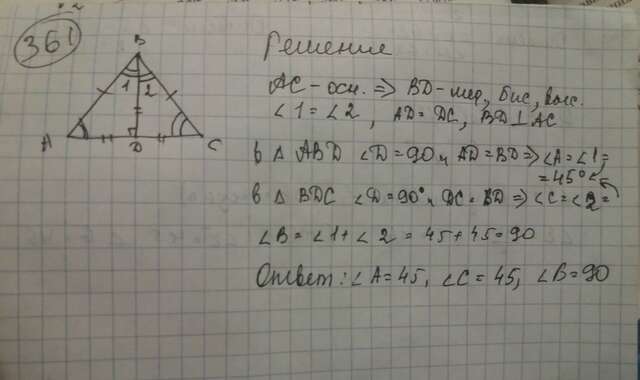 361
B
1 2
A D C
Решение
AC - осн. => BD - мед, бис, выс.
∠1 = ∠2, AD = DC, BD ⊥ AC
в Δ ABD ∠D = 90 и AD = BD => ∠A = ∠1 =
= 45°
в Δ BDC ∠D = 90° и DC = BD => ∠C = ∠2 =
∠B = ∠1 + ∠2 = 45 + 45 = 90
Ответ: ∠A = 45, ∠C = 45, ∠B = 90